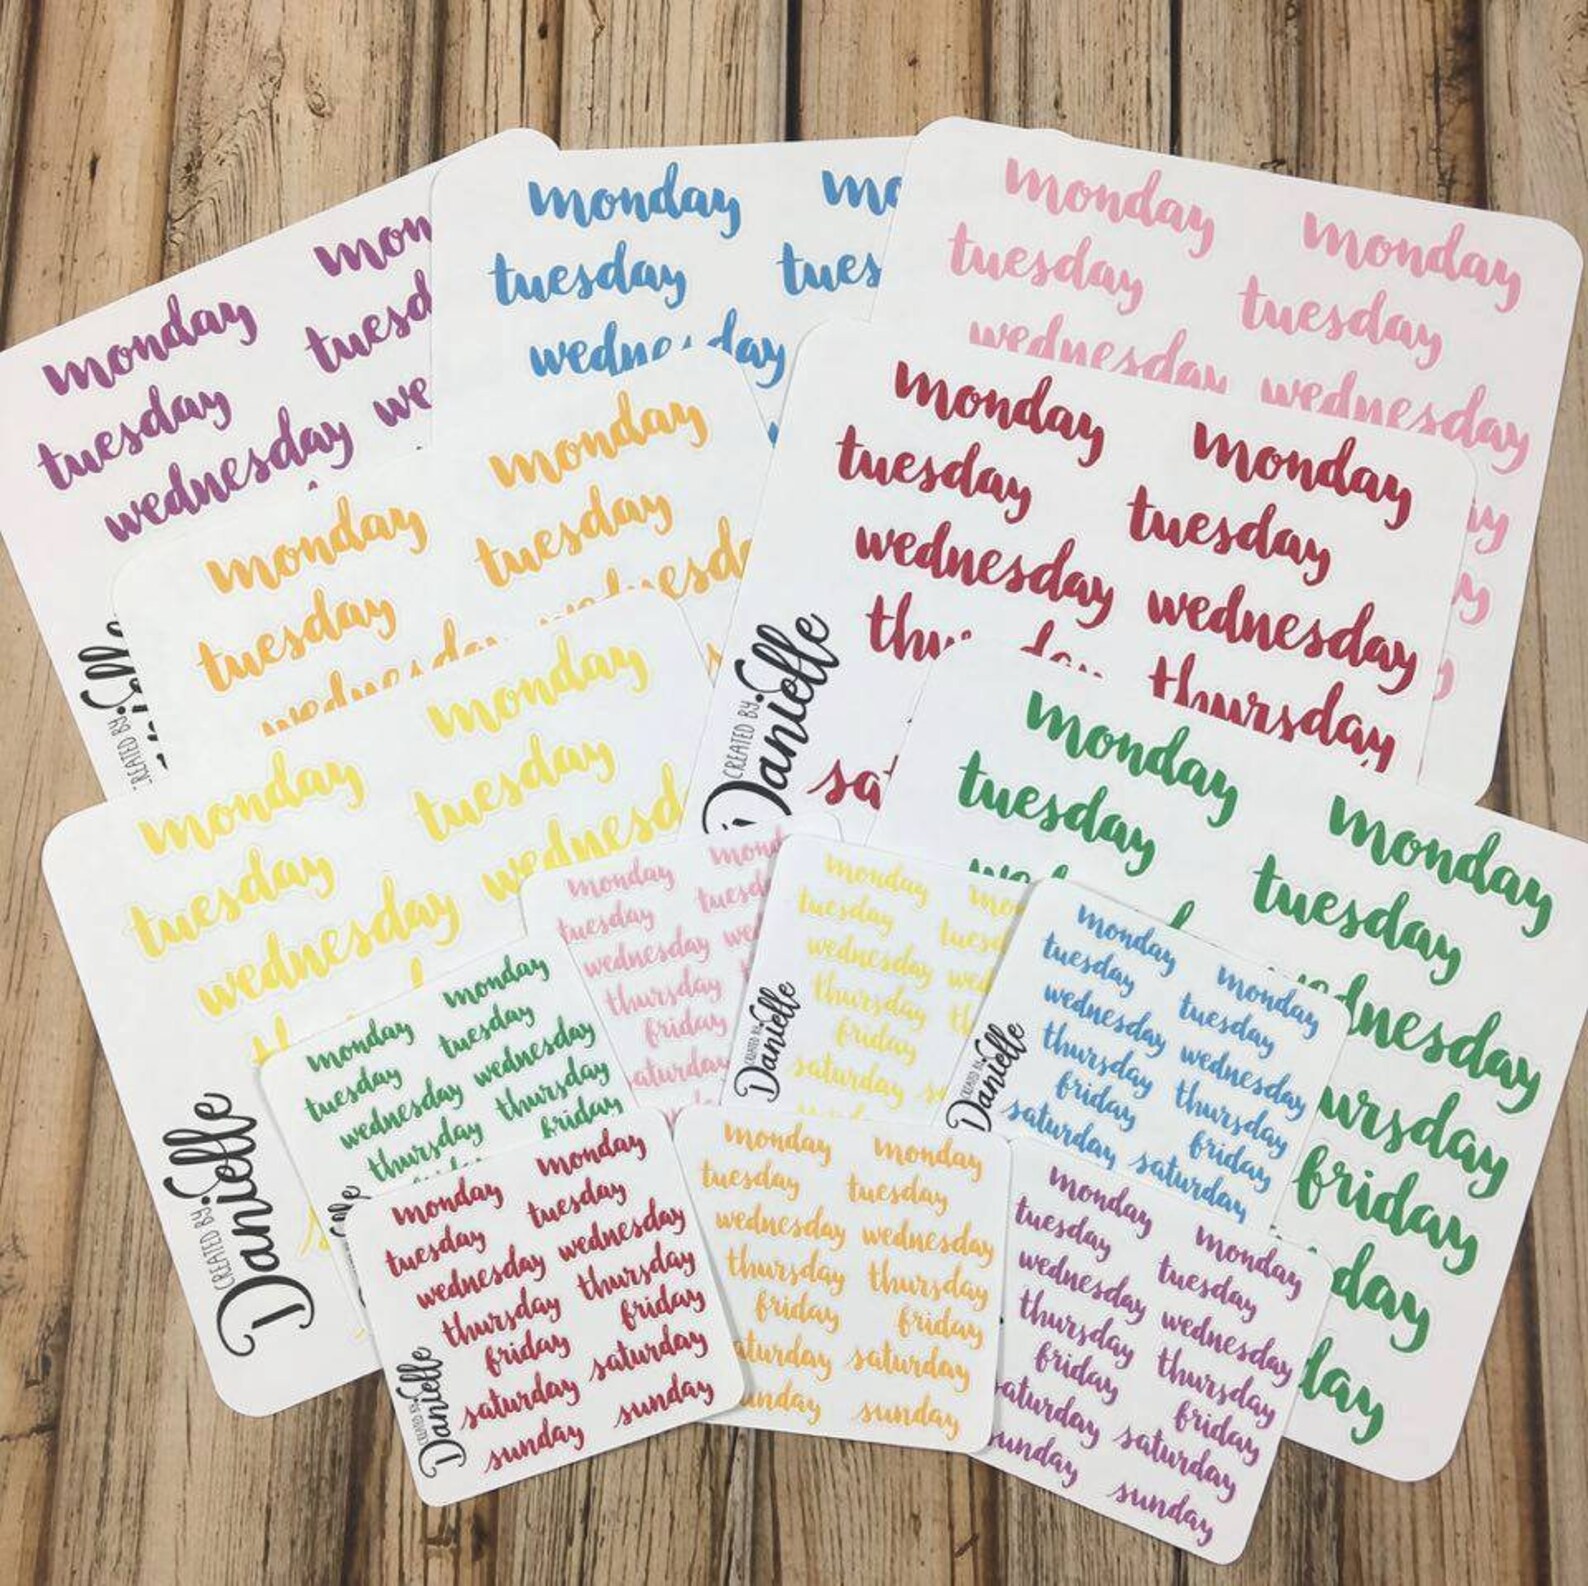 monday mon
tuesday tuesd
wednesday we
monday mo
tuesday tues
wednesday
monday monday
tuesday tuesday
wednesday wednesday
monday monday
tuesday tuesday
wednesday wednesday
thursday
sa
CREATED BY:
Danielle
monday monday
tuesday tuesday
wednesday
CREATED BY:
monday monday
tuesday tuesday
wednesday wednesd
CREATED BY:
Danielle
monday monday
tuesday tuesday
wednesday
thursday
friday
day
day
monday mond
tuesday tuesd
wednesday we
thursday
friday
saturday
monday mon
tuesday tuesd
wednesday wed
thursday th
friday
saturday
CREATED BY:
Danielle
monday monday
tuesday tuesday
wednesday wednesday
thursday thursday
friday friday
saturday saturday
CREATED BY:
Danielle
monday monday
tuesday tuesday
wednesday wednesday
thursday thursday
friday
monday monday
tuesday tuesday
wednesday wednesday
thursday thursday
friday friday
saturday saturday
sunday sunday
CREATED BY:
Danielle
monday monday
tuesday tuesday
wednesday wednesday
thursday thursday
friday friday
saturday saturday
sunday sunday
monday monday
tuesday tuesday
wednesday wednesday
thursday thursday
friday friday
saturday saturday
sunday sunday